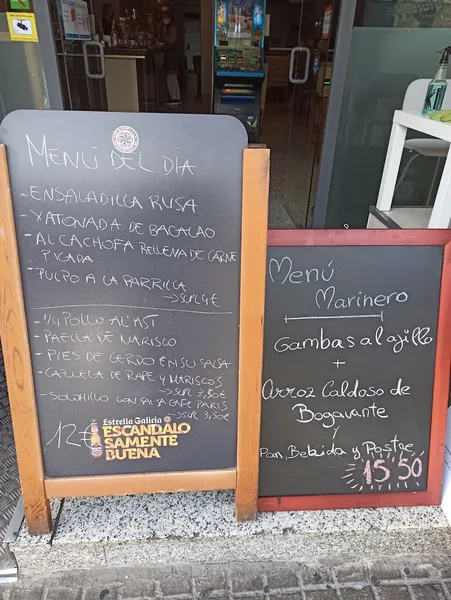 MENÚ DEL DIA
- ENSALADILLA RUSA
- XATONADA DE BACALAO
- ALCACHOFA RELLENA DE CARNE
PICADA
- PULPO A LA PARRILLA
→ SUPL 4€
- 1/4 POLLO AL'AST
- PAELLA DE MARISCO
- PIES DE CERDO EN SU SALSA
- CAZUELA DE RAPE Y MARISCOS
→ SUPL 3,50€
- SOLOMILLO CON SALSA CAFÉ PARIS
→ SUPL 3,50€
12€
Estrella Galicia
ESCANDALO
SAMENTE
BUENA
Menú
Marinero
Gambas al ajillo
+
Arroz Caldoso de
Bogavante
y
Pan, Bebida y Postre
15'50